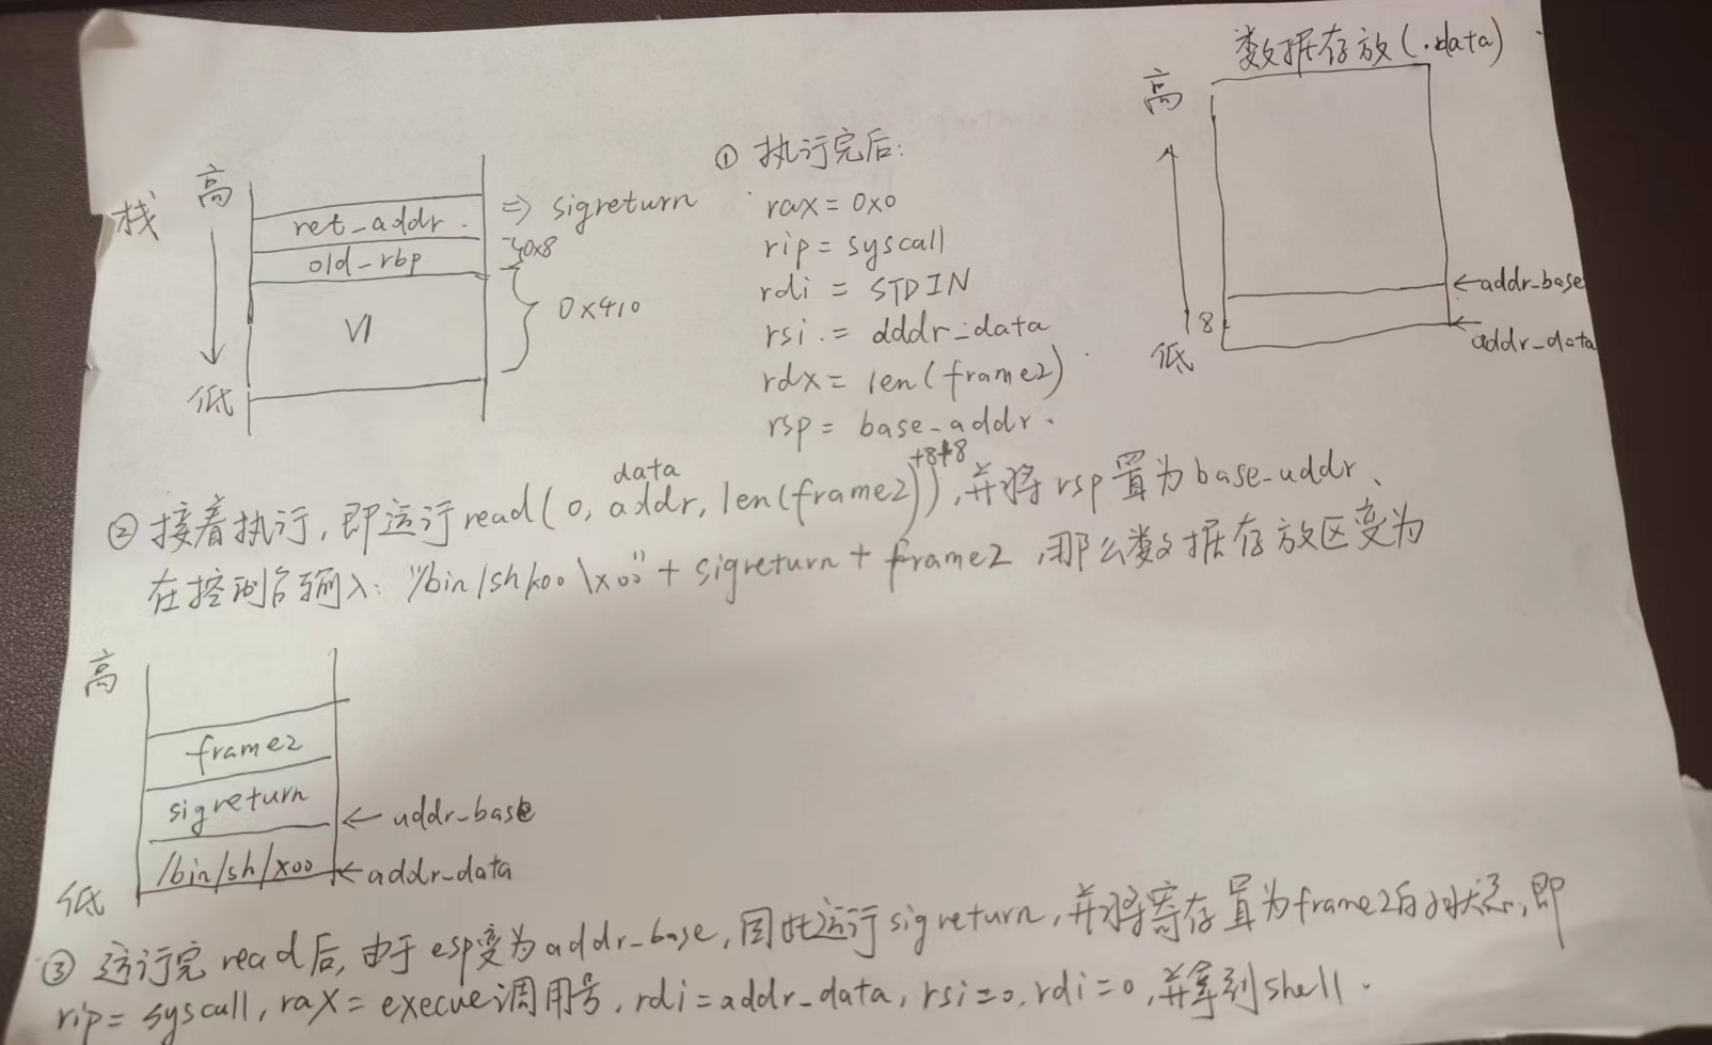 数据存放(.data)
高
8
低
←addr_base
←addr_data
栈
高
低
ret_addr
⇒ sigreturn
old_rbp
}0x8
V1
0x410
① 执行完后:
rax = 0x0
rip = syscall
rdi = STDIN
rsi = dddr_data
rdx = len(frame2)
rsp = base_addr.
data
+8+8
② 接着执行, 即运行read(0, addr, len(frame2)), 并将rsp置为base_addr、
在控制台输入: "/bin/sh\x00\x00" + sigreturn + frame2, 那么数据存放区变为
高
frame2
sigreturn
← addr_base
/bin/sh/x00
← addr_data
低
③ 运行完read后, 由于esp变为addr_base, 因此运行sigreturn, 并将寄存置为frame2的状态, 即
rip = syscall, rax = execue调用号, rdi = addr_data, rsi = 0, rdi = 0, 并拿到shell.